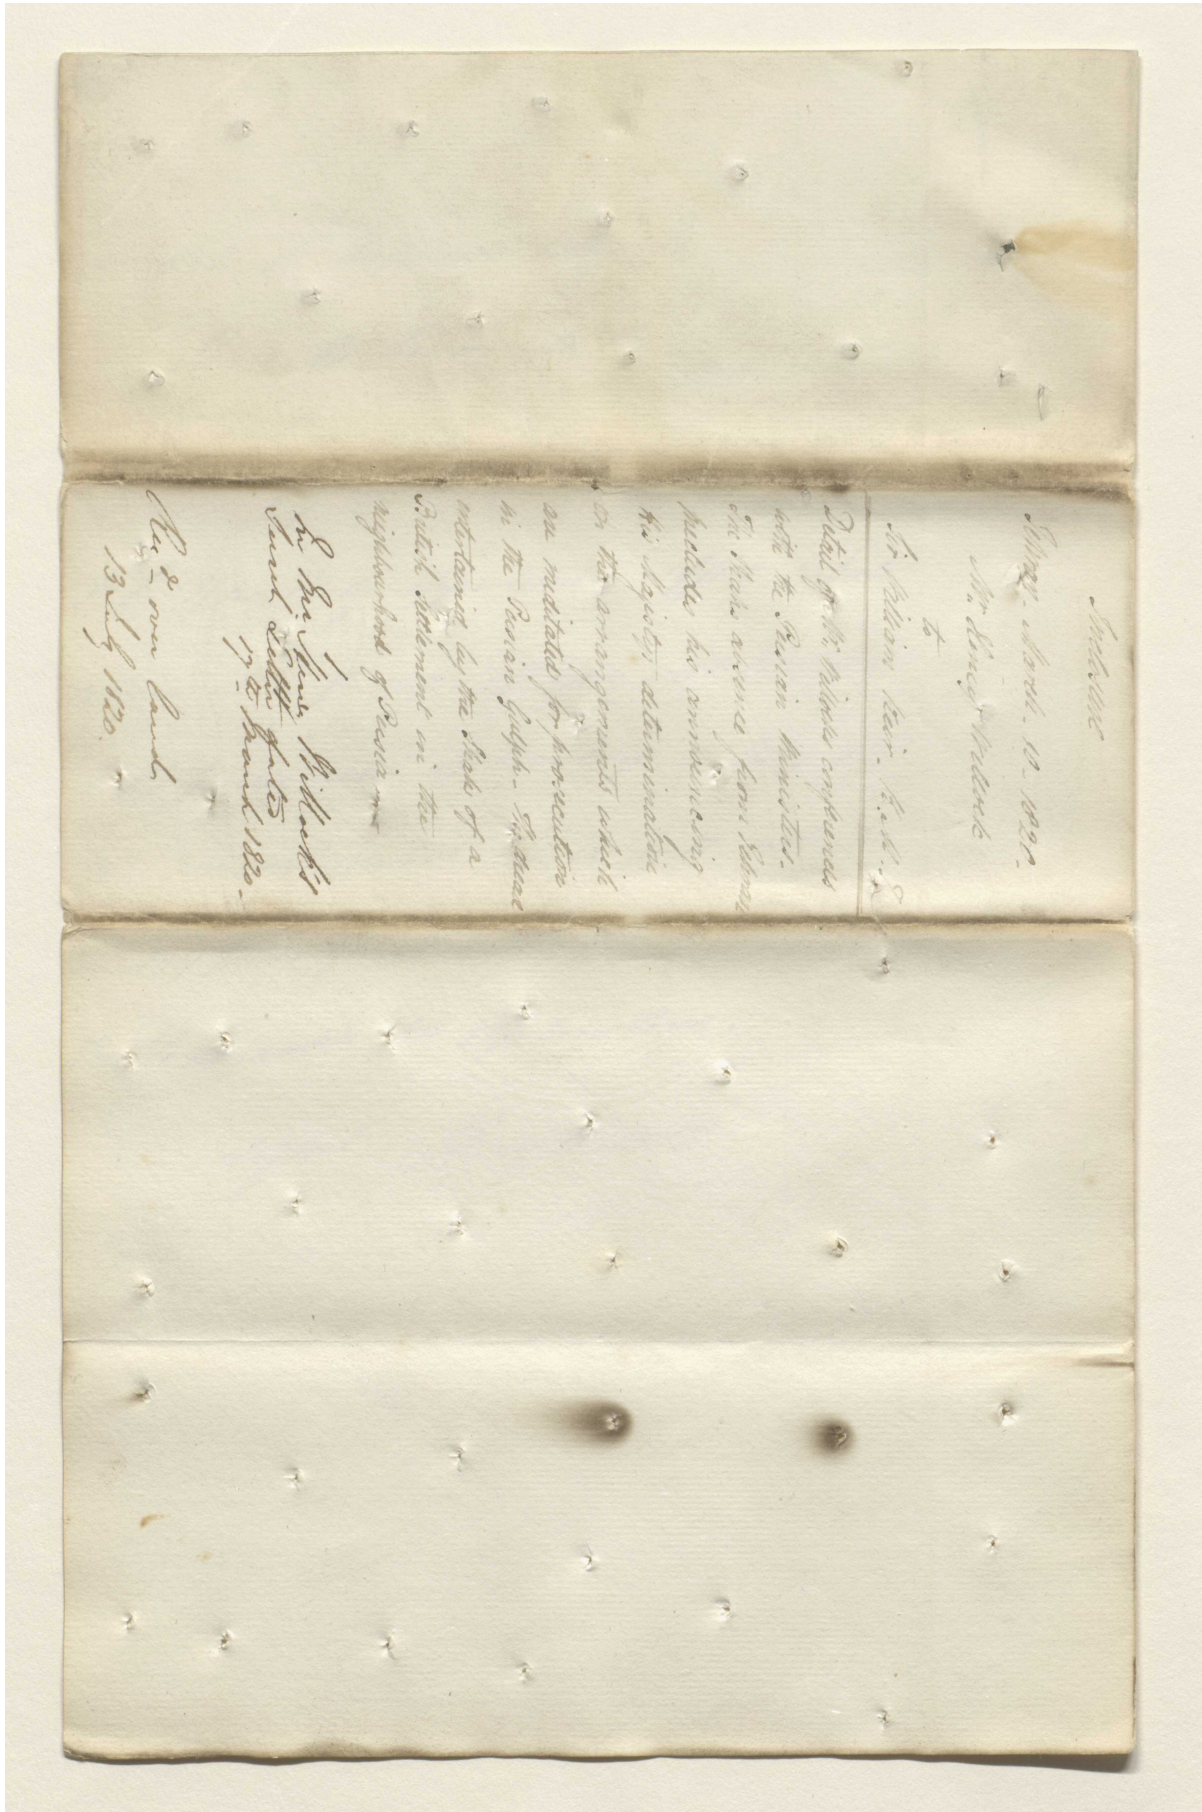 Inclosure
Tehran - March - 10 - 1820 -
Mr. Henry Willock
to
Sir William Keir -
Detail of Mr. Willocks conferences
with the Persian Ministers -
The Shahs absence from Tehran
precludes his announcing
His Majestys determination
on the arrangements which
are meditated for prosecution
in the Persian Gulph -
entertained by the Shah of a
British Settlement in the
neighbourhood of Persia
In Mr. Henry Willock's
Secret Letter dated
17th March 1820 -
Recd over land
13 July 1820.